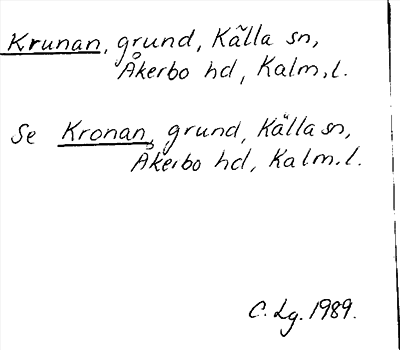 Krunan, grund, Källa sn,
Åkerbo hd, Kalm.l.
Se Kronan, grund, Källa sn,
Åkerbo hd, Kalm.l.
C. Lg. 1989.